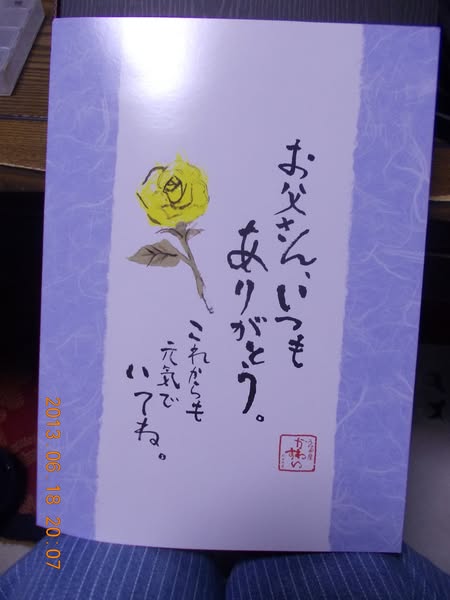 お父さん、いつも
ありがとう。
これからも
元気で
いてね。
かわい
2013 06 18 20:07